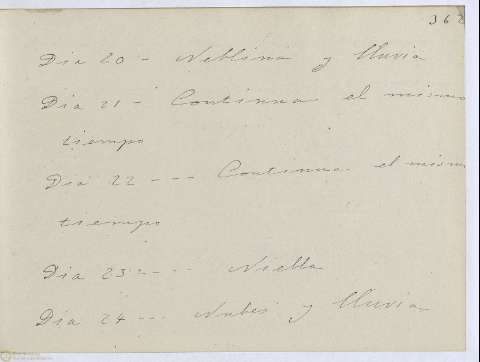 362
Dia 20 - Neblina y lluvia
Dia 21 - Continua el mismo
tiempo
Dia 22 --- Continua el mismo
tiempo
Dia 23 ---- Niebla
Dia 24 --- Nubes y lluvia